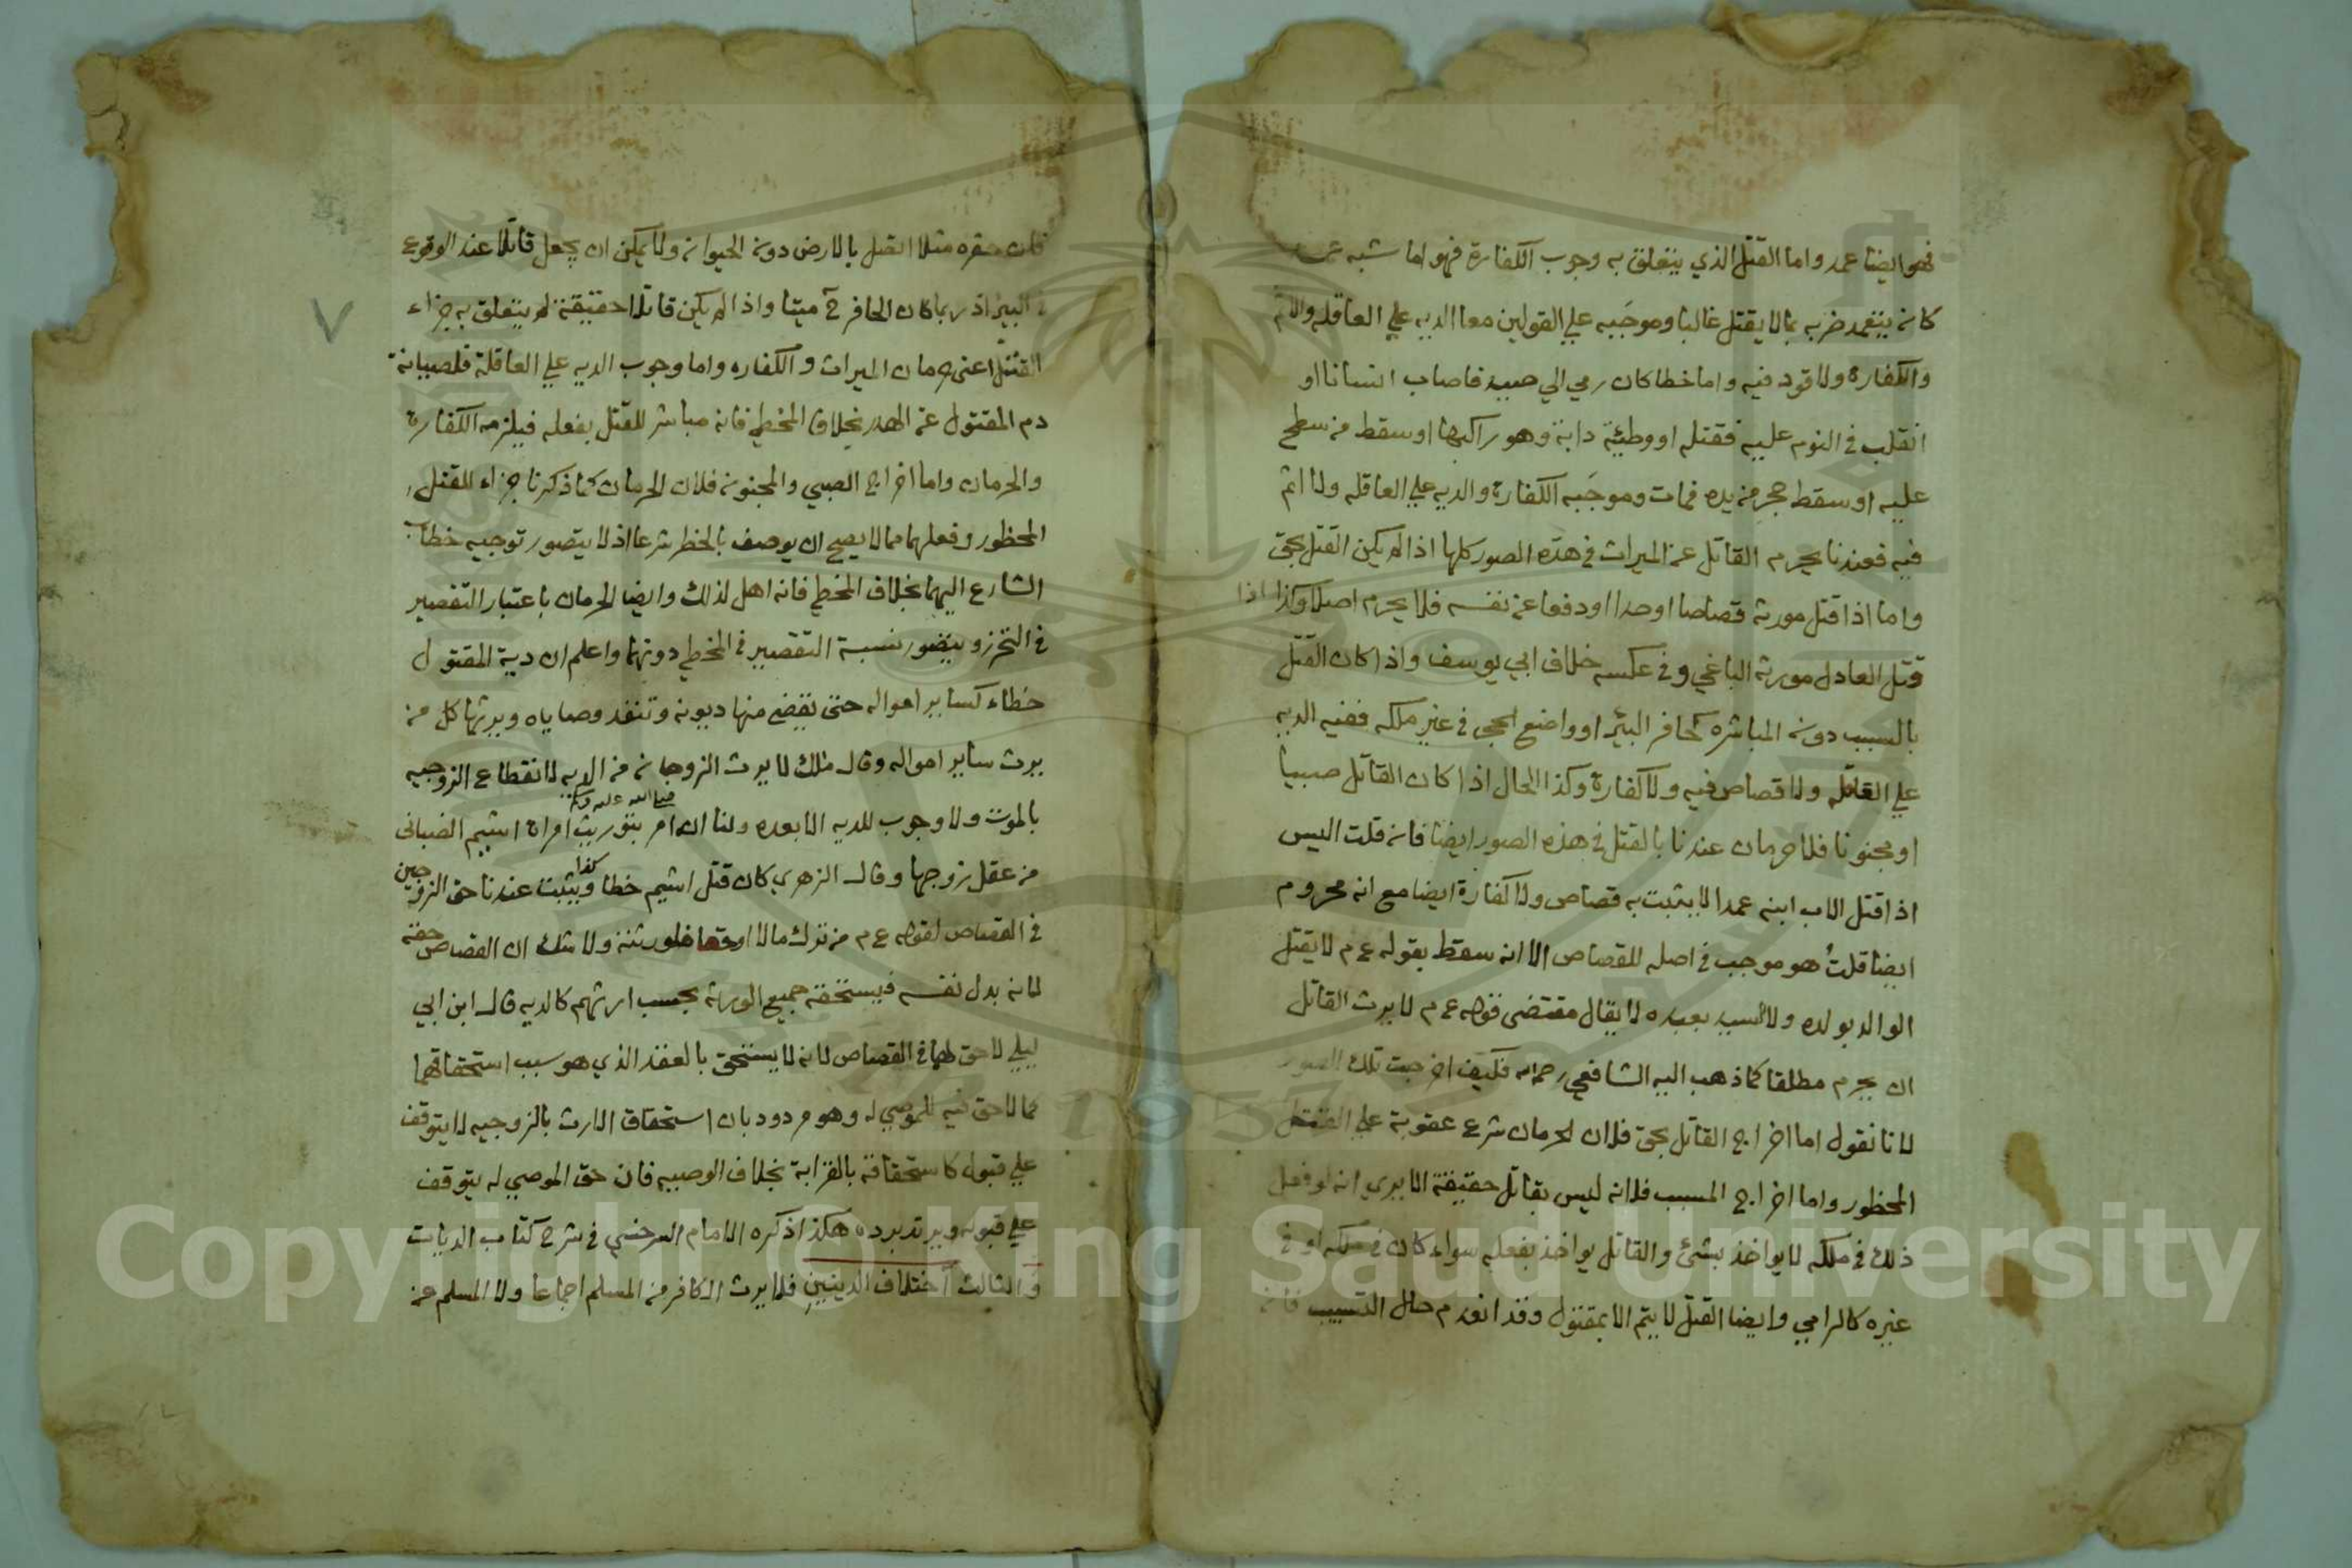 فهو ايضا عمد واما القتل الذي يتعلق به وجوب الكفارة فهو اما شبه عمد
كان يتعمد ضربه بما لا يقتل غالبا وموجَبه علي القولين معا الديه علي العاقله والاثم
والكفارة ولا قود فيه واما خطا كان رمي الي صيد فاصاب انسانا او
انقلب في النوم عليه فقتله او وطيئة دابة وهو راكبها او سقط من سطح
عليه او سقط حجر من يده فمات وموجَبه الكفارة والديه علي العاقله ولا اثم
فيه فعندنا يحرم القاتل عن الميراث في هذه الصور كلها اذا لم يكن القتل بحق
واما اذا قتل مورثه قصاصا او حدا او دفعا عن نفسه فلا يحرم اصلا وكذا اذا
قتل العادل مورثه الباغي وفي عكسه خلاف ابي يوسف واذا كان القتل
بالسبب دون المباشره كحافر البئر او واضع الحجر في غير ملكه ففيه الديه
علي العاقله ولا قصاص فيه ولا كفارة وكذا الحال اذا كان القاتل صبيا
او مجنونا فلا حرمان عندنا بالقتل في هذه الصور ايضا فان قلت اليس
اذا قتل الاب ابنه عمدا لا يثبت به قصاص ولا كفارة ايضا مع انه محروم
ايضا قلتُ هو موجب في اصله للقصاص الا انه سقط بقوله ع م لا يقتل
الوالد بولده ولا السيد بعبده لا يقال مقتضى قوله ع م لا يرث القاتل
ان يحرم مطلقا كما ذهب اليه الشافعي رحمه الله فكيف اخرجت تلك الصور
لانا نقول اما اخراج القاتل بحق فلان الحرمان شرع عقوبة علي القتل
المحظور واما اخراج المسبب فلانه ليس بقاتل حقيقة الا يري انه لو فعل
ذلك في ملكه لا يواخذ بشئ والقاتل يواخذ بفعله سواء كان في ملكه او في
غيره كالرامي وايضا القتل لا يتم الا بمقتول وقد انعدم حال التسبيب فانه
فان حفره مثلا اتصل بالارض دون الحيوان ولا يمكن ان يجعل قاتلا عند الوقوع
في البير اذ ربما كان الحافر ح ميتا واذا لم يكن قاتلا حقيقة لم يتعلق به جزاء
القتل اعني حرمان الميراث والكفاره واما وجوب الديه علي العاقلة فلصيانة
دم المقتول عن الهدر بخلاف المخطي فانه مباشر للقتل بفعله فيلزمه الكفارة
والحرمان واما اخراج الصبي والمجنون فلان الحرمان كما ذكرنا جزاء للقتل
المحظور وفعلهما مما لا يصح ان يوصف بالحظر شرعا اذ لا يتصور توجيه خطاب
الشارع اليهما بخلاف المخطي فانه اهل لذلك وايضا الحرمان باعتبار التقصير
في التحرز ويتصور نسبة التقصير في المخطي دونهما واعلم ان دية المقتول
خطاء كساير امواله حتى تقضي منها ديونه وتنفذ وصاياه ويرثها كل من
يرث ساير امواله وقال مالك لا يرث الزوجان من الديه لانقطاع الزوجيه
بالموت ولا وجوب للديه الا بعده ولنا انه صلى الله عليه وسلم امر بتوريث امراة اشيم الضبابي
من عقل زوجها وقال الزهري كان قتل اشيم خطا وكذا يثبت عندنا حق الزوجين
في القصاص لقوله ع م من ترك مالا او حقا فلورثته ولا شك ان القصاص حقه
لانه بدل نفسه فيستحقه جميع الورثه بحسب ارثهم كالديه قال ابن ابي
ليلي لا حق لهما في القصاص لانه لا يستحق بالعقد الذي هو سبب استحقاقهما
كما لا حق فيه للموصي له وهو مردود بان استحقاق الارث بالزوجيه لا يتوقف
علي قبول كاستحقاقه بالقرابة بخلاف الوصيه فان حق الموصي له يتوقف
علي قبوله ويرتد برده هكذا ذكره الامام السرخسي في شرح كتاب الديات
والثالث اختلاف الدينين فلا يرث الكافر من المسلم اجماعا ولا المسلم من
٧
Copyright © King Saud University
1957